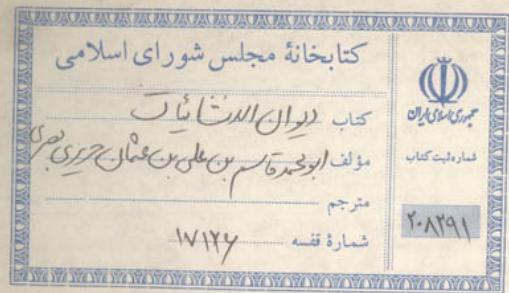 کتابخانهٔ مجلس شورای اسلامی
کتاب دیوان الانشائیات
مؤلف ابومحمد قاسم بن علی بن عثمان حریری بصری
مترجم
شمارهٔ قفسه ۱۷۱۲۶
جمهوری اسلامی ایران
شماره ثبت کتاب
۲۰۸۲۹۱